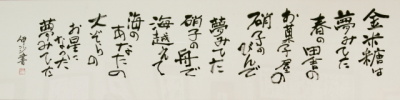 金米糖は
夢みてた
春の田舎の
お菓子屋の
硝子のびんで
夢みてた
硝子の舟で
海越えて
海のあなたの
大ぞらの
お星に
なった
夢みてた